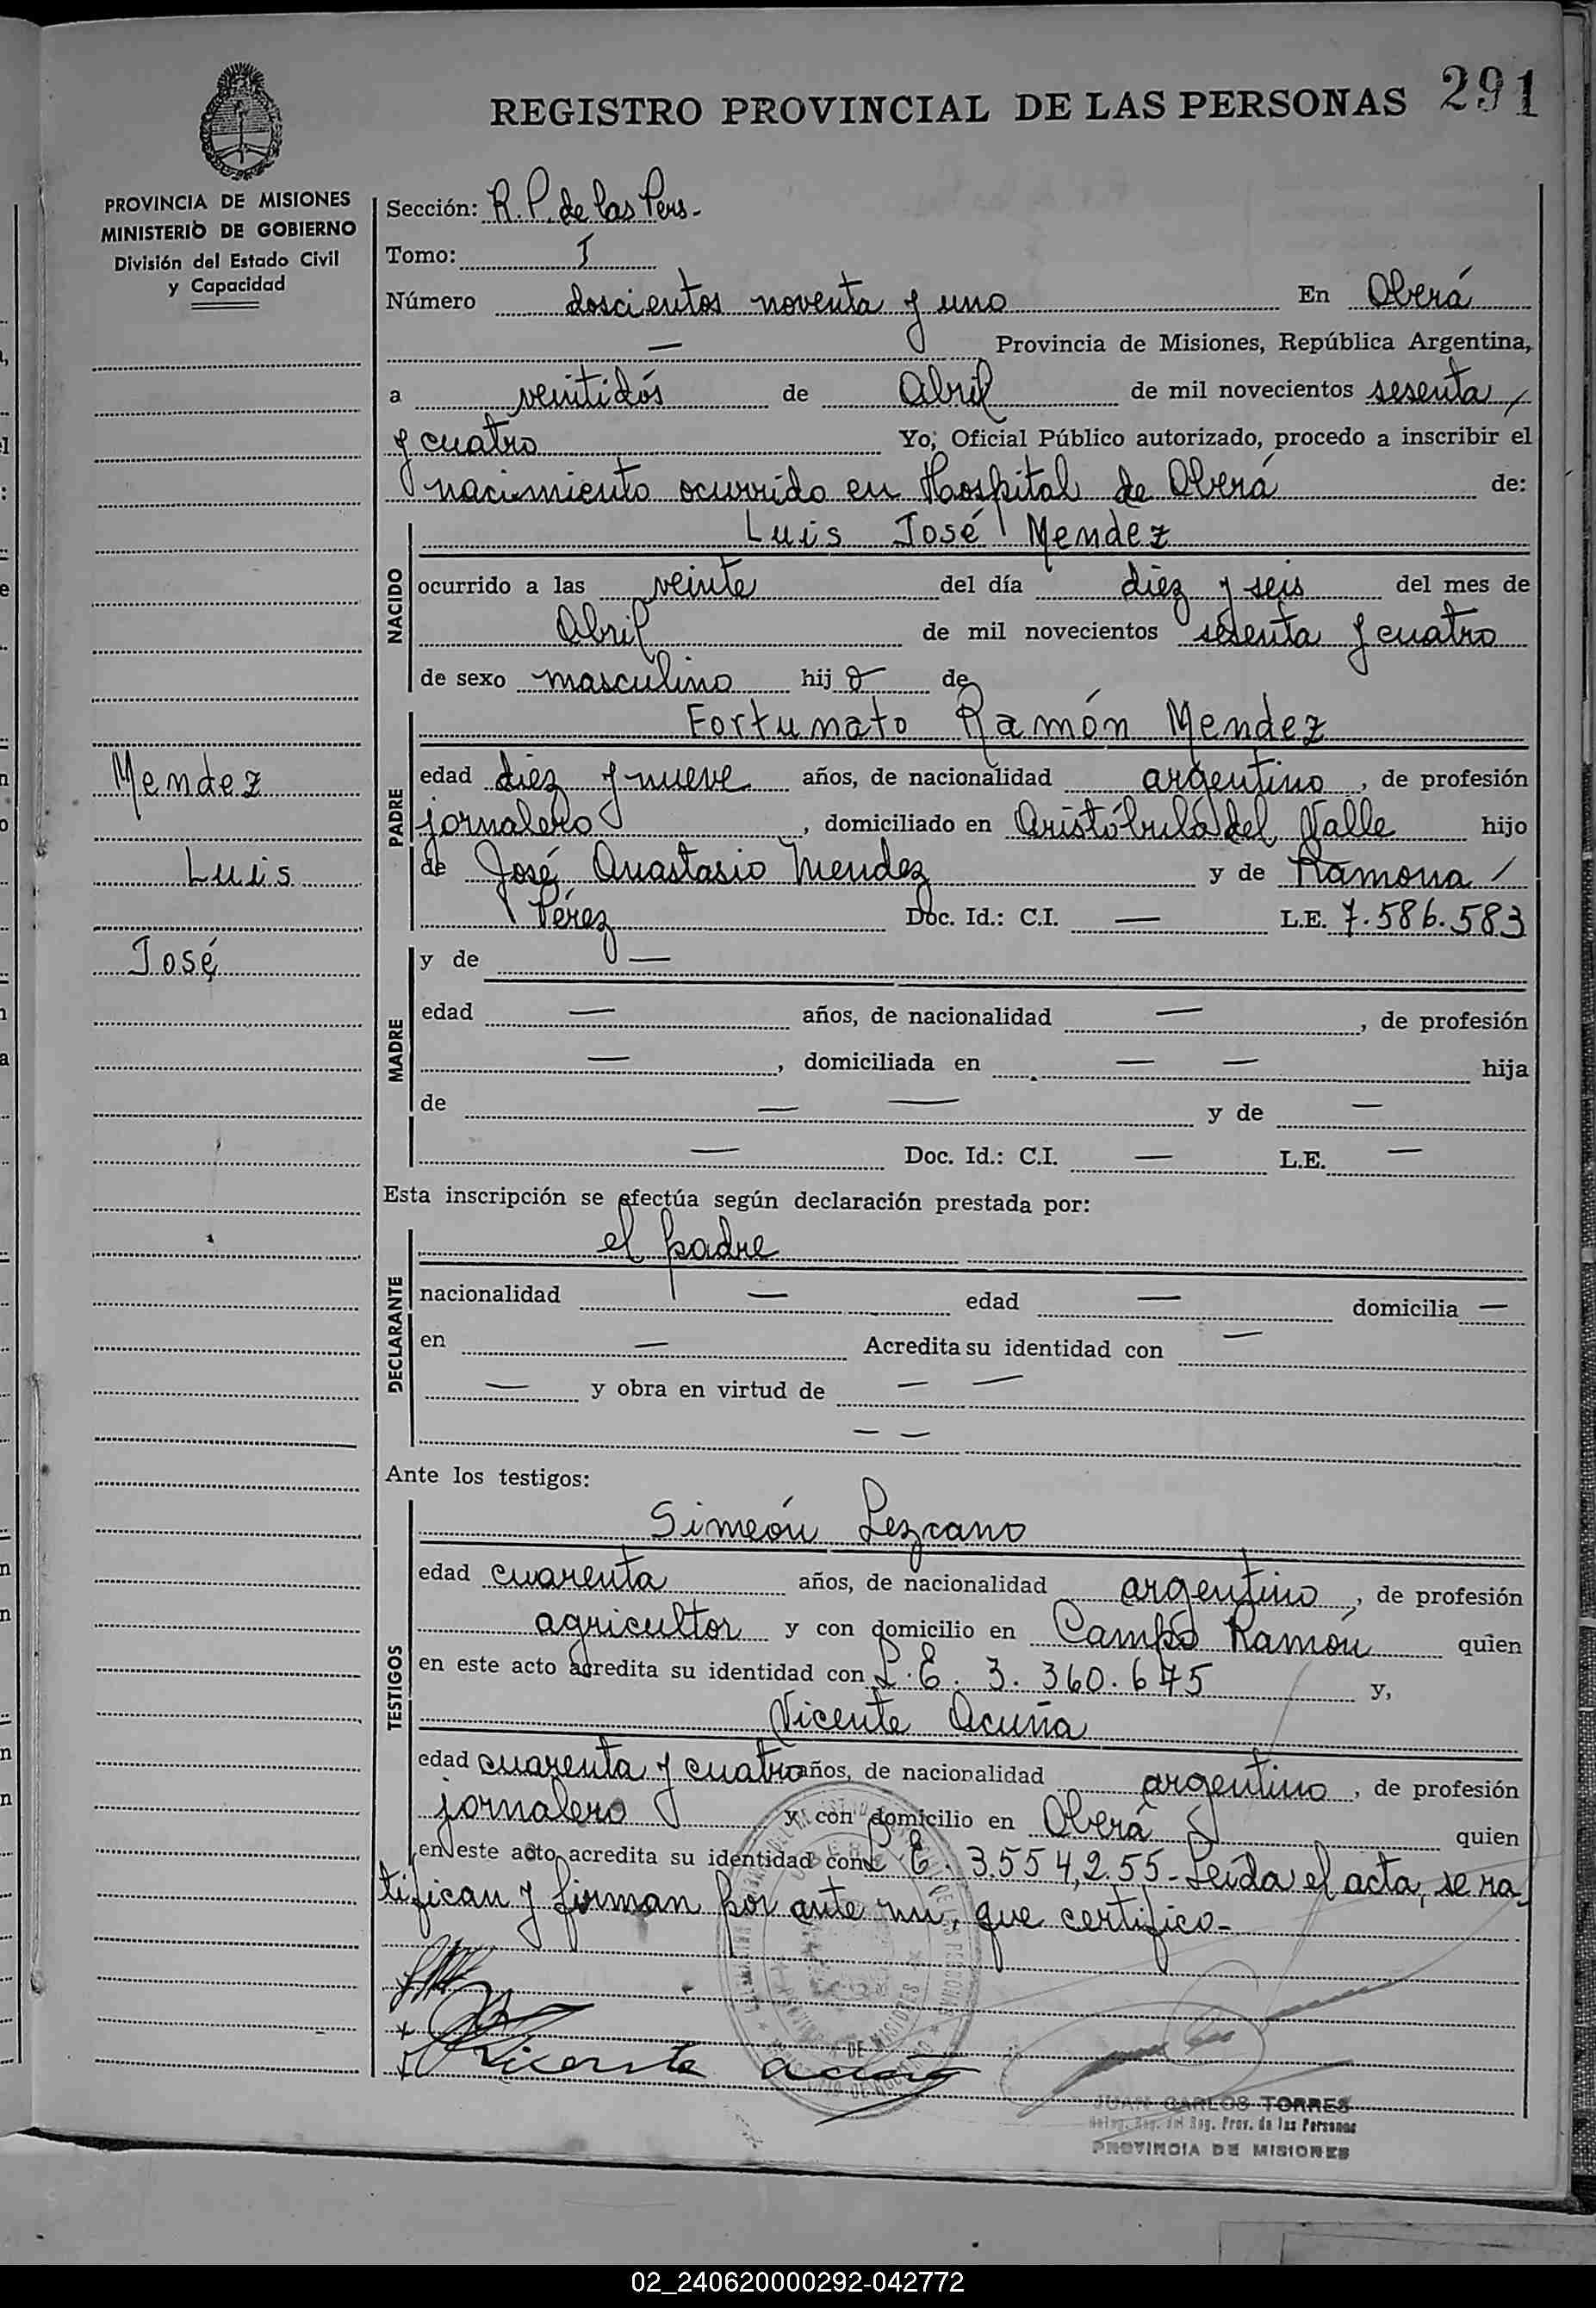 REGISTRO PROVINCIAL DE LAS PERSONAS 291
PROVINCIA DE MISIONES
MINISTERIO DE GOBIERNO
División del Estado Civil
y Capacidad
Mendez
Luis
José
Sección: R. P. de las Pers.-
Tomo: I
Número doscientos noventa y uno En Oberá
— Provincia de Misiones, República Argentina,
a veintidós de Abril de mil novecientos sesenta /
y cuatro Yo, Oficial Público autorizado, procedo a inscribir el
nacimiento ocurrido en Hospital de Oberá de:
NACIDO
Luis José Mendez
ocurrido a las veinte del día diez y seis del mes de
Abril de mil novecientos sesenta y cuatro
de sexo masculino hijo de
PADRE
Fortunato Ramón Mendez
edad diez y nueve años, de nacionalidad argentino, de profesión
jornalero, domiciliado en Aristóbulo del Valle hijo
de José Anastasio Mendez y de Ramona /
Pérez Doc. Id.: C.I. — L.E. 7.586.583
MADRE
y de —
edad — años, de nacionalidad —, de profesión
—, domiciliada en — — hija
de — — y de —
— Doc. Id.: C.I. — L.E. —
Esta inscripción se efectúa según declaración prestada por:
DECLARANTE
el padre
nacionalidad — edad — domicilia —
en — Acredita su identidad con —
— y obra en virtud de — —
— —
Ante los testigos:
TESTIGOS
Simeón Lezcano
edad cuarenta años, de nacionalidad argentino, de profesión
agricultor y con domicilio en Campo Ramón quien
en este acto acredita su identidad con L.E. 3.360.675 y,
Vicente Acuña
edad cuarenta y cuatro años, de nacionalidad argentino, de profesión
jornalero y con domicilio en Oberá quien
en este acto acredita su identidad con L.E. 3.554,255- Leída el acta, se ra-
tifican y firman por ante mi, que certifico-
Vicente acuña
JUAN CARLOS TORRES
Reg. Prov. de las Personas
PROVINCIA DE MISIONES
02_240620000292-042772